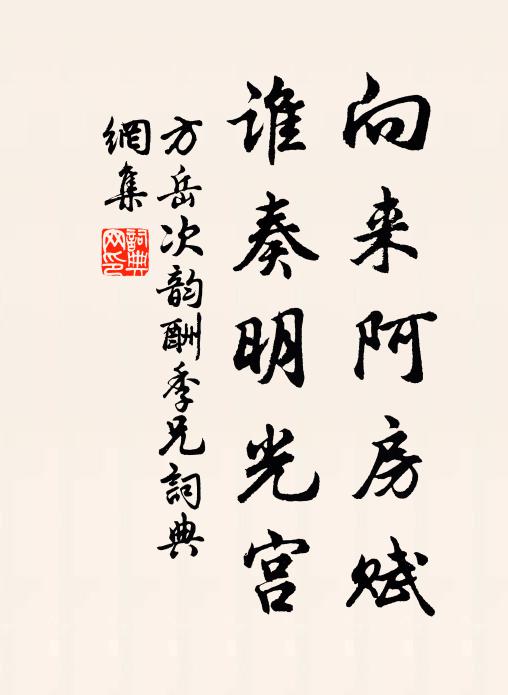 向来阿房赋
谁奏明光宫
方岳次韵酬季兄詞典
網集
詞典
网印